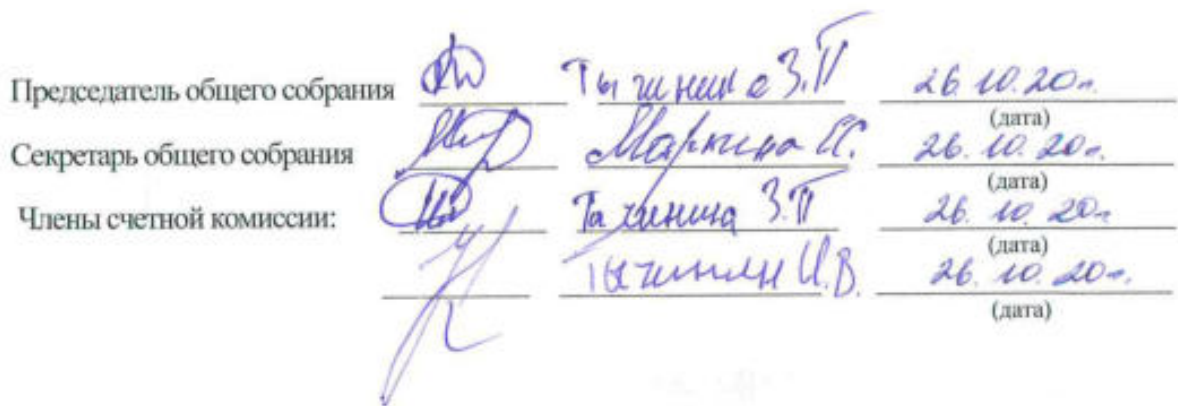 Председатель общего собрания Тычинина З.П 26.10.20г.
(дата)
Секретарь общего собрания Маркина Е.С. 26.10.20г.
(дата)
Члены счетной комиссии: Тычинина З.П 26.10.20г
(дата)
Тычинин И.В. 26.10.20г.
(дата)